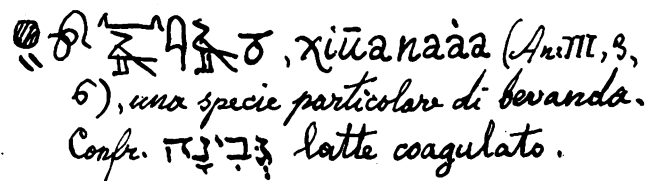 , χiūanaàa (An: III, 3,
6), una specie particolare di bevanda.
Confr. גְּבִינָה latte coagulato.